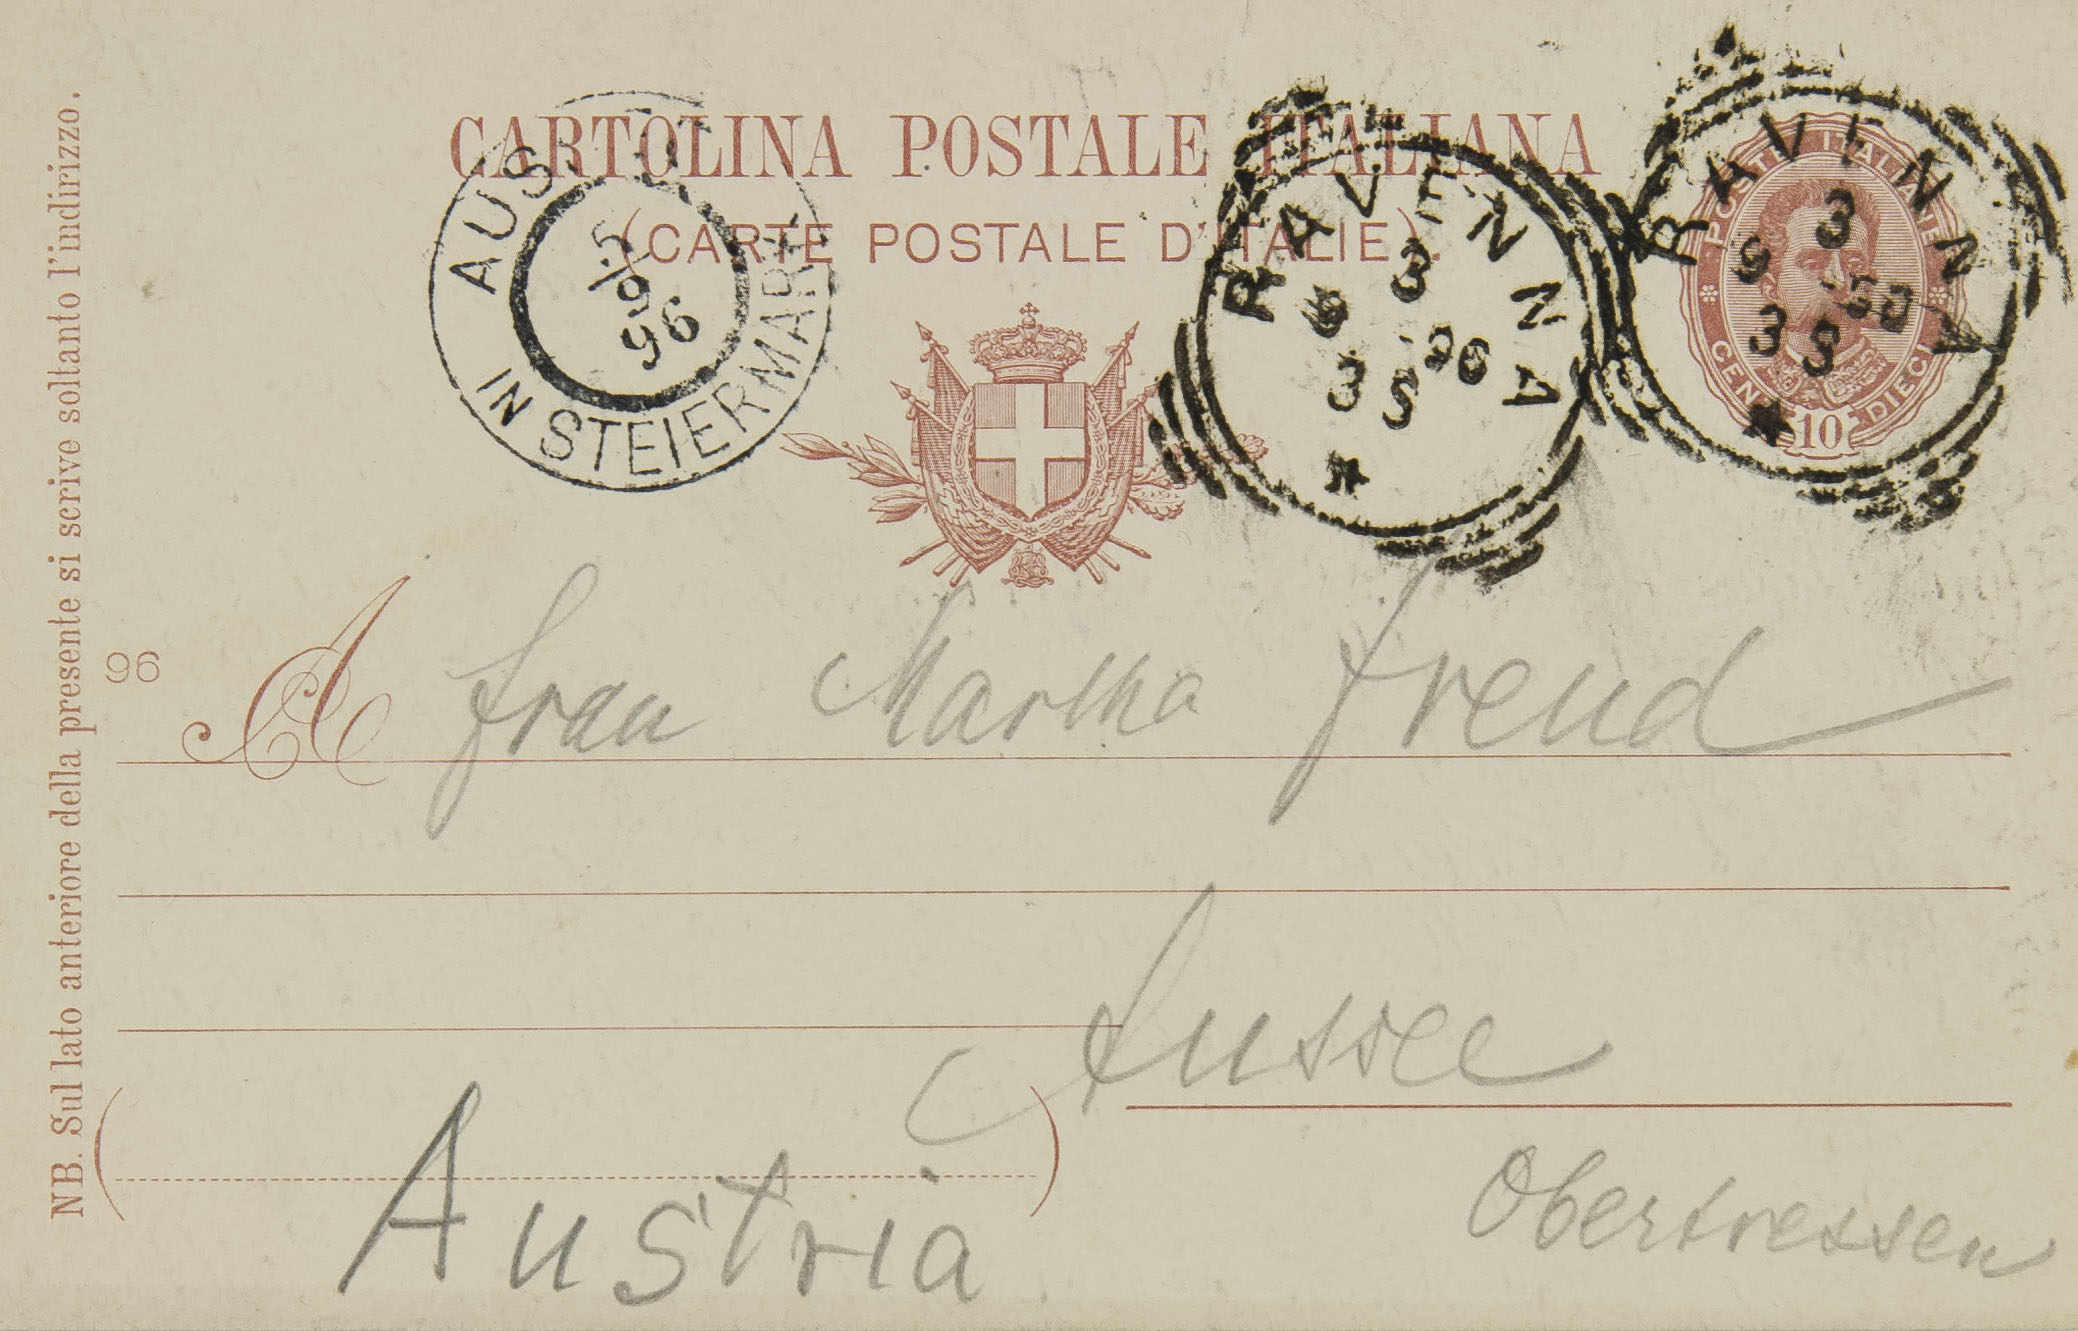 CARTOLINA POSTALE ITALIANA
(CARTE POSTALE D'ITALIE).
AUSSEE
IN STEIERMARK
5 9
96
RAVENNA
3
9 96
3 S
RAVENNA
3
9
3 S
POSTE ITALIANE
CENT. DIECI
10
NB. Sul lato anteriore della presente si scrive soltanto l'indirizzo.
96
A Frau Martha Freud
Aussee
Austria
Obertressen